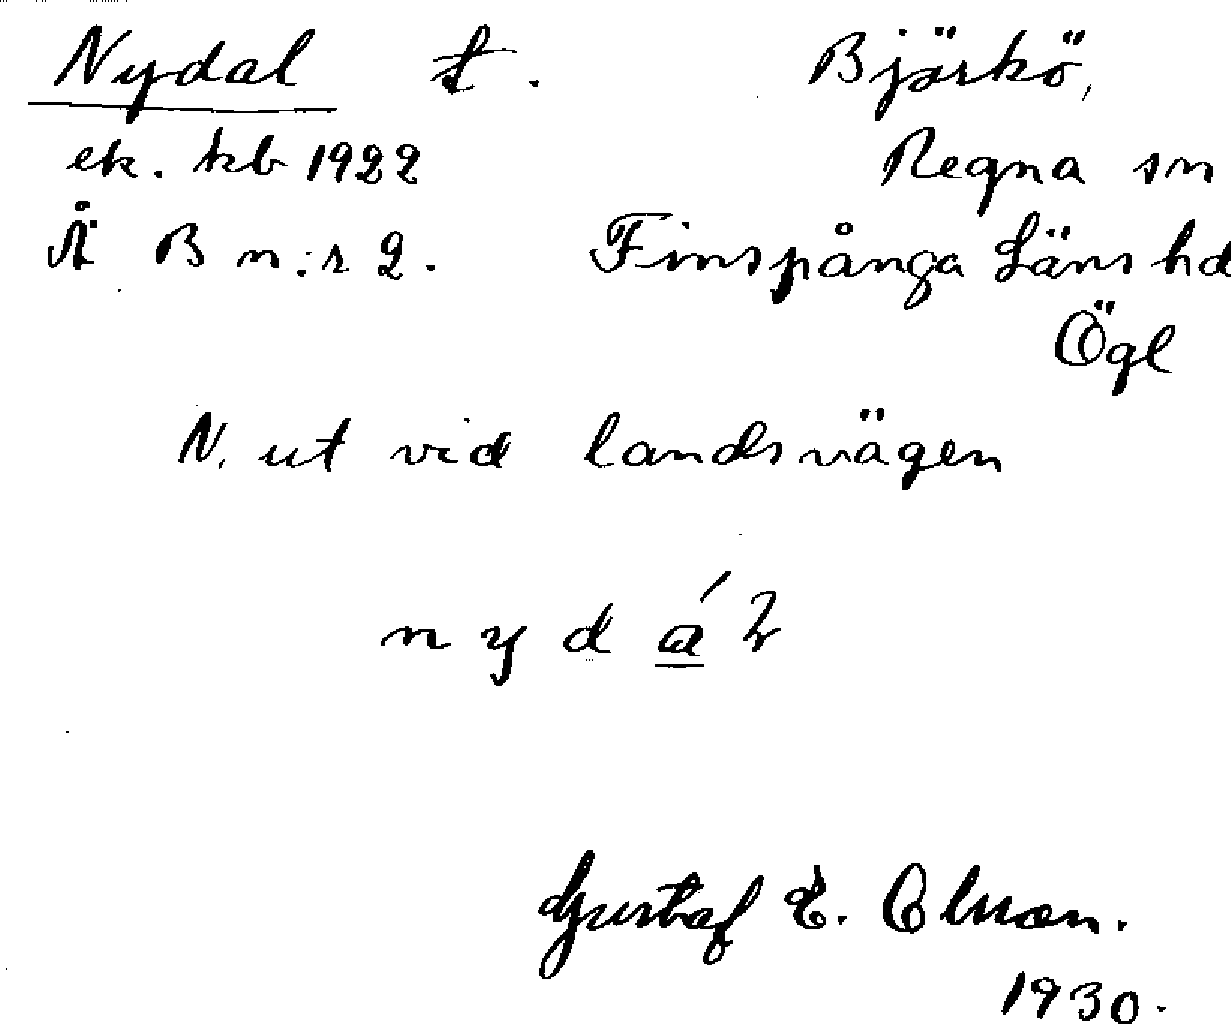 Nydal t. Björkö,
ek. kb 1922 Regna sn
B n:r 2. Finspånga Läns hd
Ögl
N. ut vid landsvägen
n y d á
Gustaf E.
1930.